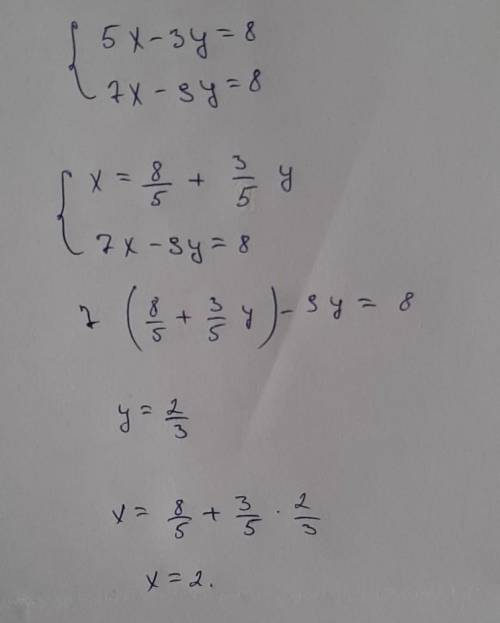 5x - 3y = 8
7x - 9y = 8
x = 8/5 + 3/5 y
7x - 9y = 8
7 (8/5 + 3/5 y) - 9y = 8
y = 2/3
x = 8/5 + 3/5 · 2/3
x = 2.